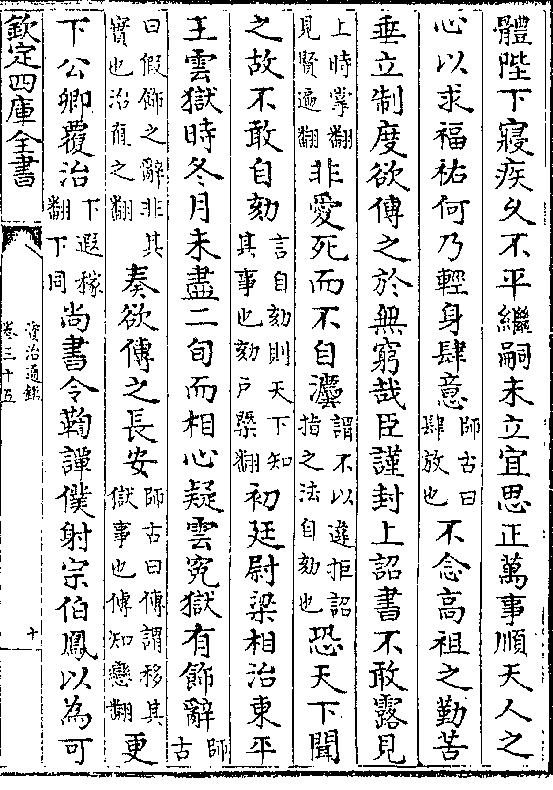 體陛下寢疾久不平繼嗣未立宜思正萬事順天人之
心以求福祐何乃輕身肆意師古曰肆放也不念高祖之勤苦
垂立制度欲傳之於無窮哉臣謹封上詔書不敢露見
上時掌翻見賢遍翻非愛死而不自灋謂不以違拒詔指之法自劾也恐天下聞
之故不敢自劾言自劾則天下知其事也劾戶槩翻初廷尉梁相治東平
王雲獄時冬月未盡二旬而相心疑雲寃獄有飾辭師古
曰假飾之辭非其實也治直之翻奏欲傳之長安師古曰傳謂移其獄事也傳知戀翻更
下公卿覆治下遐稼翻下同尚書令鞫譚僕射宗伯鳳以為可
欽定四庫全書
資治通鑑
卷三十五
十